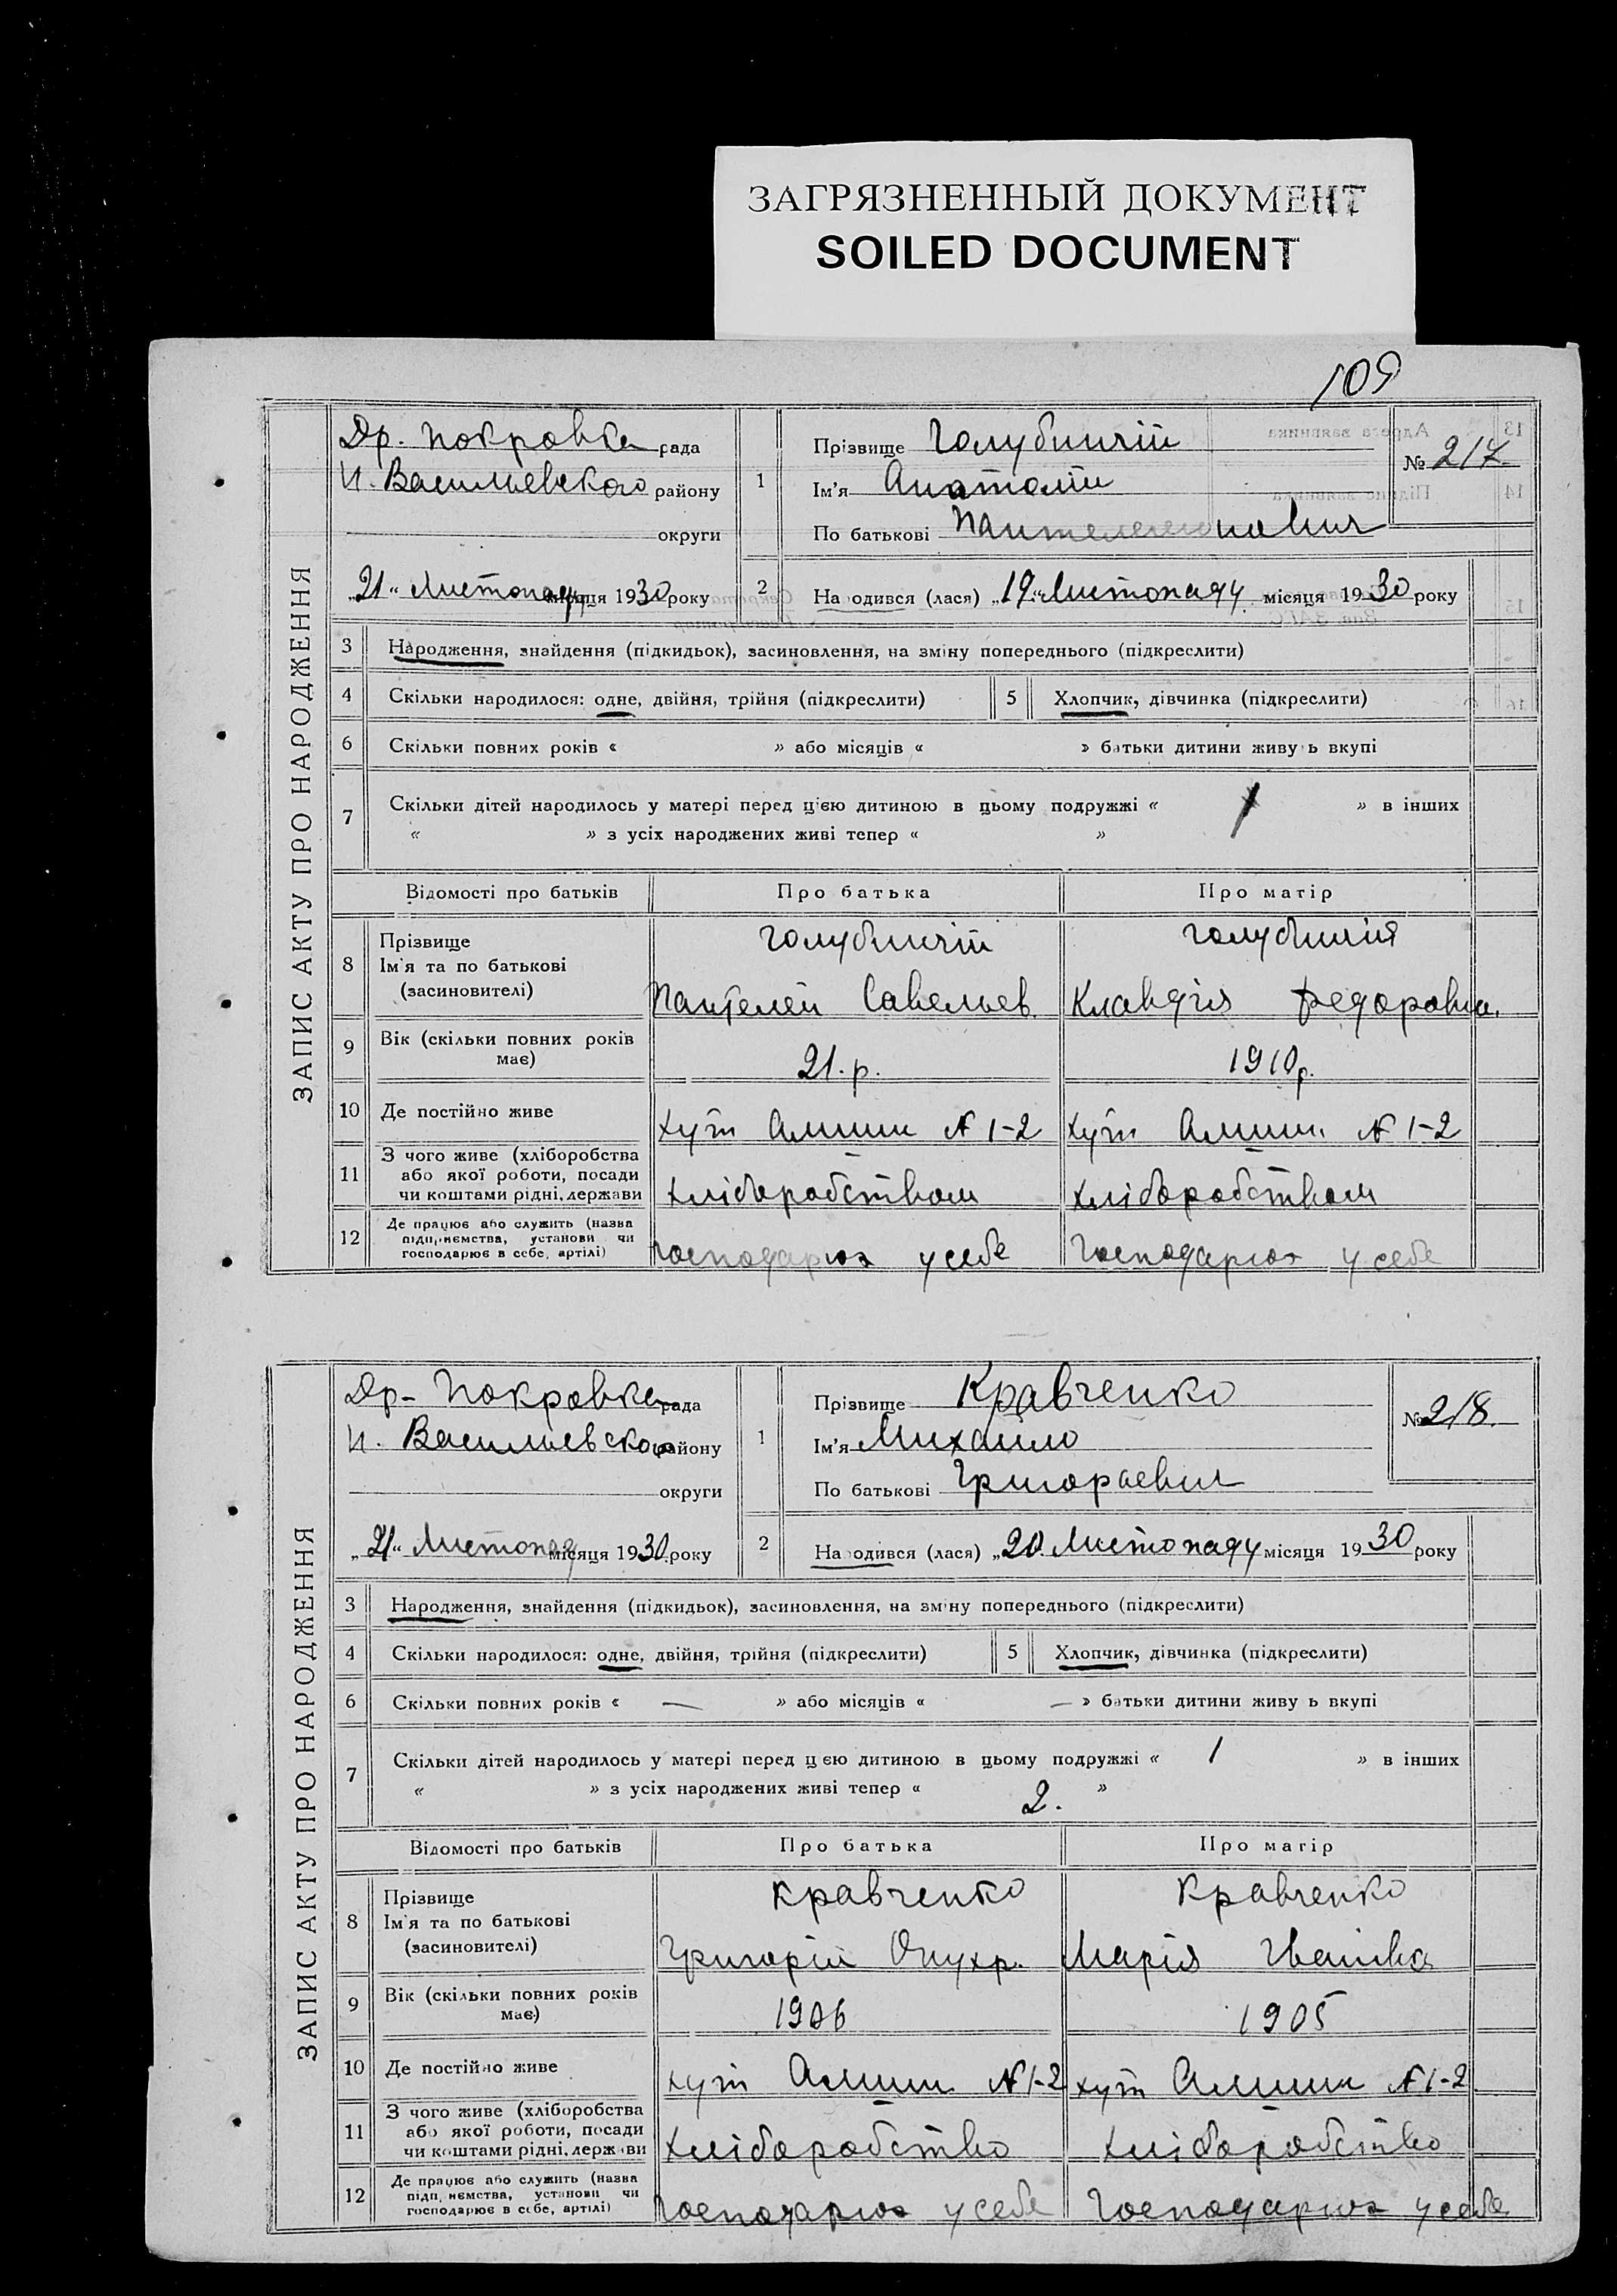 ЗАГРЯЗНЕННЫЙ ДОКУМЕНТ
SOILED DOCUMENT
109
ЗАПИС АКТУ ПРО НАРОДЖЕННЯ
Др. Покровка рада
Н. Васильевского району
округи
„21“ Листопаду місяця 1930 року
1 Прізвище Голубничій
Ім'я Анатолій
По батькові Пантелемонович
№ 217.
2 Народився (лася) „19“ Листопаду місяця 1930 року
3 Народження, знайдення (підкидьок), засиновлення, на зміну попереднього (підкреслити)
4 Скільки народилося: одне, двійня, трійня (підкреслити) 5 Хлопчик, дівчинка (підкреслити)
6 Скільки повних років « » або місяців « » батьки дитини живуть вкупі
7 Скільки дітей народилось у матері перед цією дитиною в цьому подружжі « 1 » в інших
« » з усіх народжених живі тепер « »
Відомості про батьків Про батька Про матір
8 Прізвище Голубничій Голубничія
Ім'я та по батькові
(засиновителі) Пантелей Савельев. Клавдія Федоровна.
9 Вік (скільки повних років має) 21.р. 1910р.
10 Де постійно живе хут № 1-2 хут № 1-2
11 З чого живе (хліборобства
або якої роботи, посади
чи коштами рідні, держави хліборобством хліборобством
12 Де працює або служить (назва
підприємства, установи чи
господарює в себе, артілі) Господарює у себе Господарює у себе
ЗАПИС АКТУ ПРО НАРОДЖЕННЯ
Др- Покровка рада
Н. Васильевского району
округи
„21“ Листопад місяця 1930 року
1 Прізвище Кравченко
Ім'я Михайло
По батькові Григораевич
№ 218.
2 Народився (лася) „20. Листопаду місяця 1930 року
3 Народження, знайдення (підкидьок), засиновлення, на зміну попереднього (підкреслити)
4 Скільки народилося: одне, двійня, трійня (підкреслити) 5 Хлопчик, дівчинка (підкреслити)
6 Скільки повних років « — » або місяців « — » батьки дитини живуть вкупі
7 Скільки дітей народилось у матері перед цією дитиною в цьому подружжі « 1 » в інших
« » з усіх народжених живі тепер « 2. »
Відомості про батьків Про батька Про матір
8 Прізвище Кравченко Кравченко
Ім'я та по батькові
(засиновителі) Григорій Онухр. Марія Іванівна
9 Вік (скільки повних років має) 1906 1905
10 Де постійно живе хут № 1-2 хут № 1-2
11 З чого живе (хліборобства
або якої роботи, посади
чи коштами рідні, держави хліборобство хліборобство
12 Де працює або служить (назва
підприємства, установи чи
господарює в себе, артілі) Господарює у себе Господарює у себе